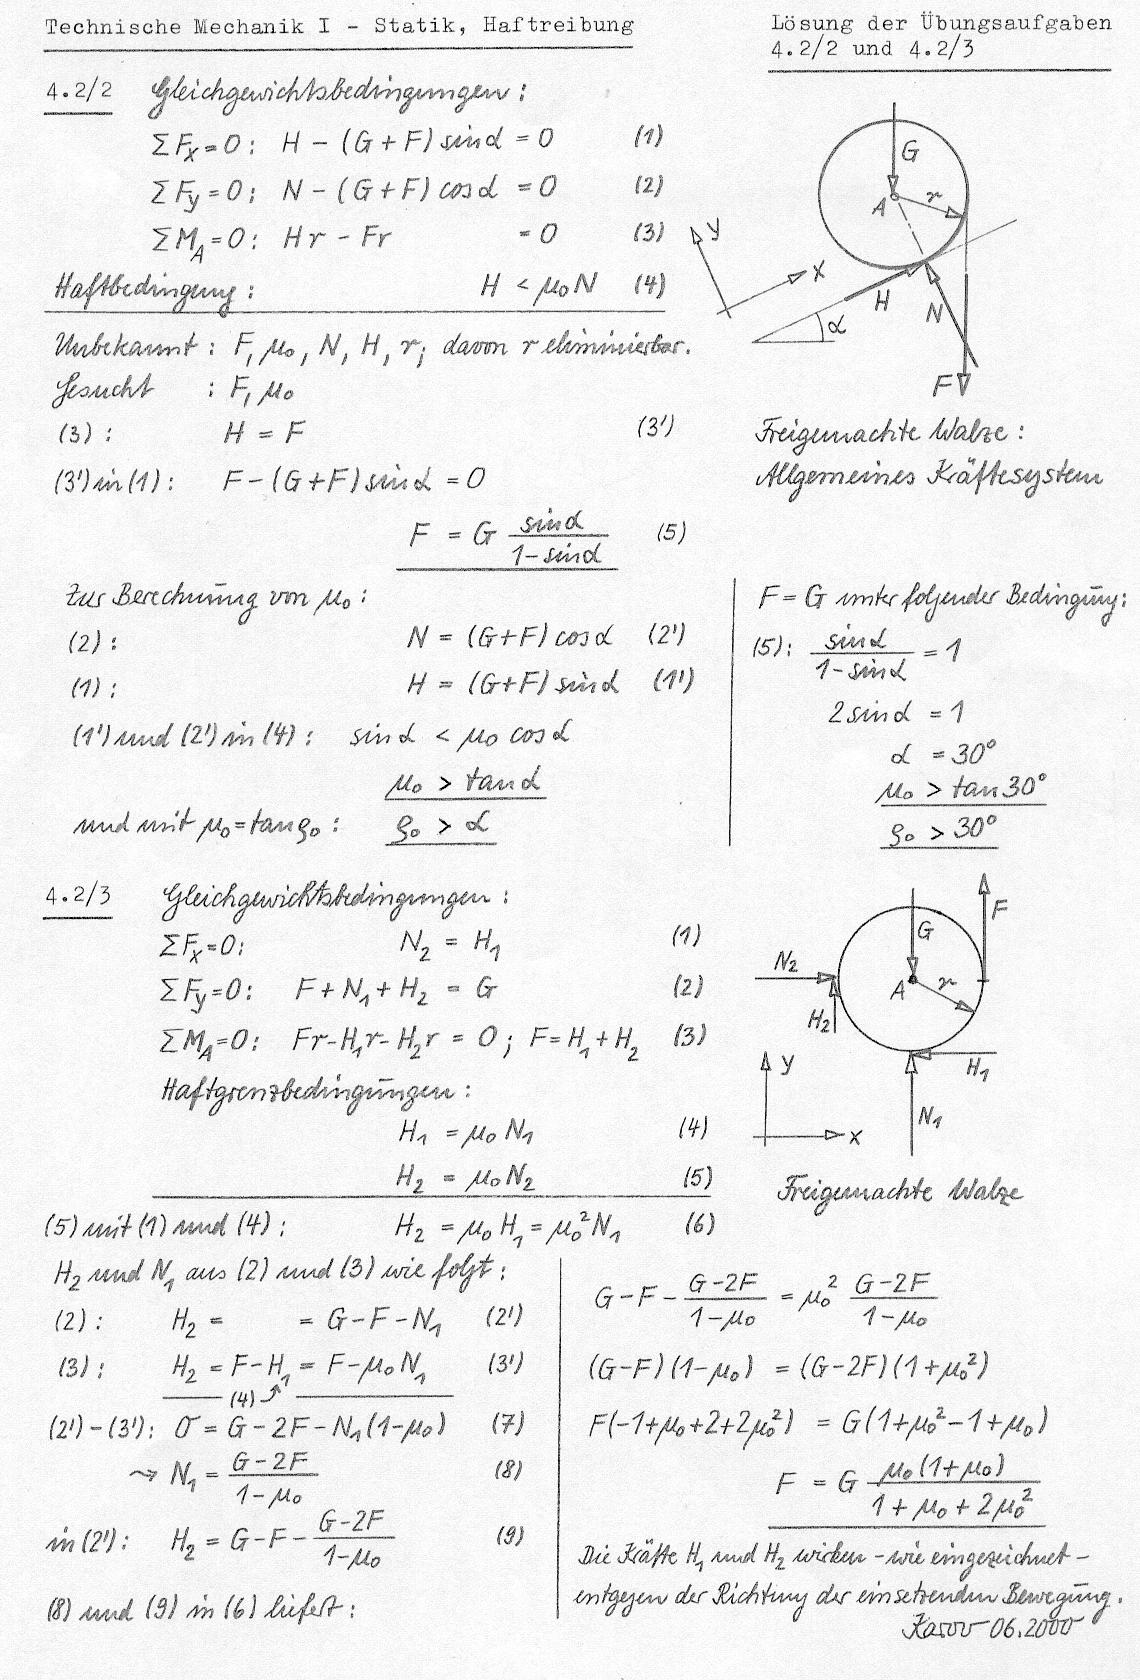 Technische Mechanik I - Statik, Haftreibung
Lösung der Übungsaufgaben
4.2/2 und 4.2/3
4.2/2 Gleichgewichtsbedingungen:
ΣFx=0: H - (G+F) sinα = 0 (1)
ΣFy=0: N - (G+F) cosα = 0 (2)
ΣM_A=0: Hr - Fr = 0 (3)
Haftbedingung: H < μ₀N (4)
Unbekannt: F, μ₀, N, H, r; davon r eliminierbar.
Gesucht : F, μ₀
(3): H = F (3')
(3') in (1): F - (G+F) sinα = 0
F = G sinα/(1-sinα) (5)
G
A
r
y
x
H
N
α
F
Freigemachte Walze:
Allgemeines Kräftesystem
Zur Berechnung von μ₀:
(2): N = (G+F) cosα (2')
(1): H = (G+F) sinα (1')
(1') und (2') in (4): sinα < μ₀ cosα
μ₀ > tanα
und mit μ₀=tanρ₀: ρ₀ > α
F = G unter folgender Bedingung:
(5): sinα/(1-sinα) = 1
2sinα = 1
α = 30°
μ₀ > tan30°
ρ₀ > 30°
4.2/3 Gleichgewichtsbedingungen:
ΣFx=0: N₂ = H₁ (1)
ΣFy=0: F+N₁+H₂ = G (2)
ΣM_A=0: Fr-H₁r-H₂r = 0; F=H₁+H₂ (3)
Haftgrenzbedingungen:
H₁ = μ₀N₁ (4)
H₂ = μ₀N₂ (5)
F
G
N₂
A
r
H₂
H₁
y
N₁
x
Freigemachte Walze
(5) mit (1) und (4): H₂ = μ₀H₁ = μ₀²N₁ (6)
H₂ und N₁ aus (2) und (3) wie folgt:
(2): H₂ = = G-F-N₁ (2')
(3): H₂ = F-H₁ = F-μ₀N₁ (3')
(4)
(2')-(3'): 0 = G-2F-N₁(1-μ₀) (7)
⤳ N₁ = (G-2F)/(1-μ₀) (8)
in (2'): H₂ = G-F-(G-2F)/(1-μ₀) (9)
(8) und (9) in (6) liefert:
G-F-(G-2F)/(1-μ₀) = μ₀² (G-2F)/(1-μ₀)
(G-F)(1-μ₀) = (G-2F)(1+μ₀²)
F(-1+μ₀+2+2μ₀²) = G(1+μ₀²-1+μ₀)
F = G μ₀(1+μ₀)/(1+μ₀+2μ₀²)
Die Kräfte H₁ und H₂ wirken - wie eingezeichnet -
entgegen der Richtung der einsetzenden Bewegung.
06.2000